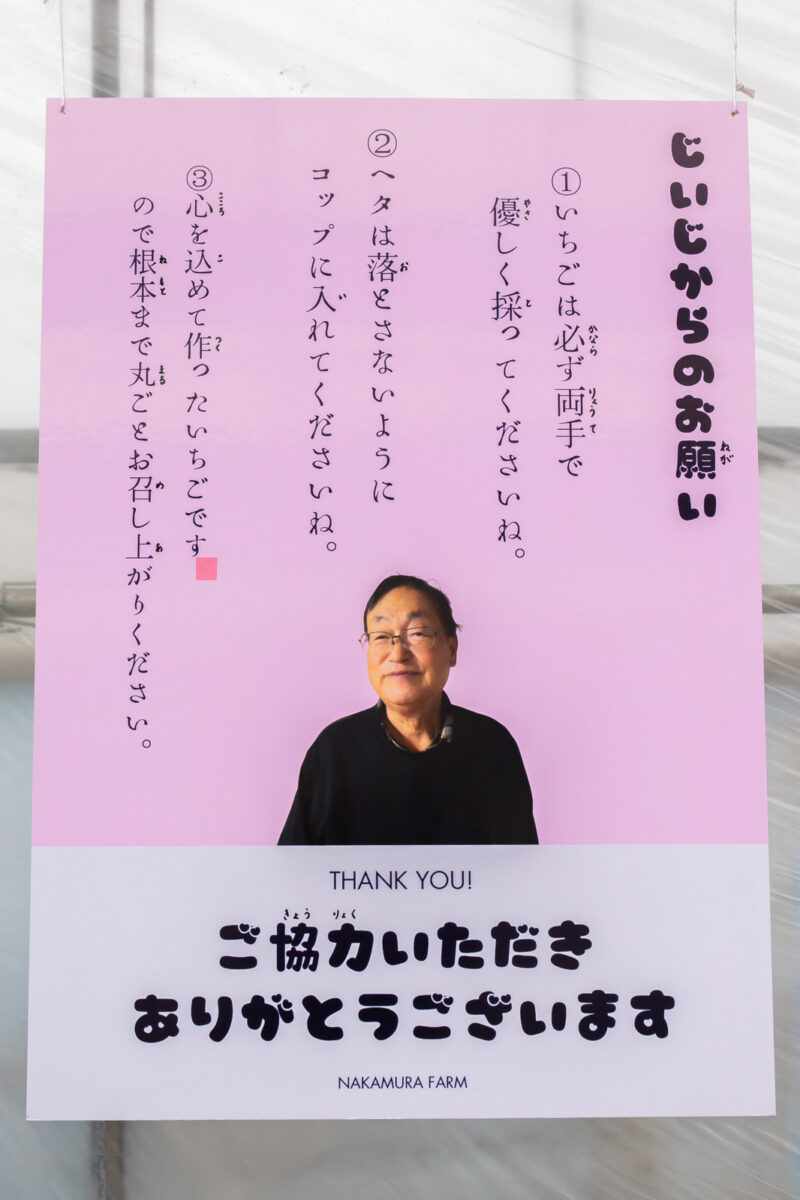 じいじからのお願い
①いちごは必ず両手で
優しく採ってくださいね。
②ヘタは落とさないように
コップに入れてくださいね。
③心を込めて作ったいちごです
ので根本まで丸ごとお召し上がりください。
THANK YOU!
ご協力いただき
ありがとうございます
NAKAMURA FARM